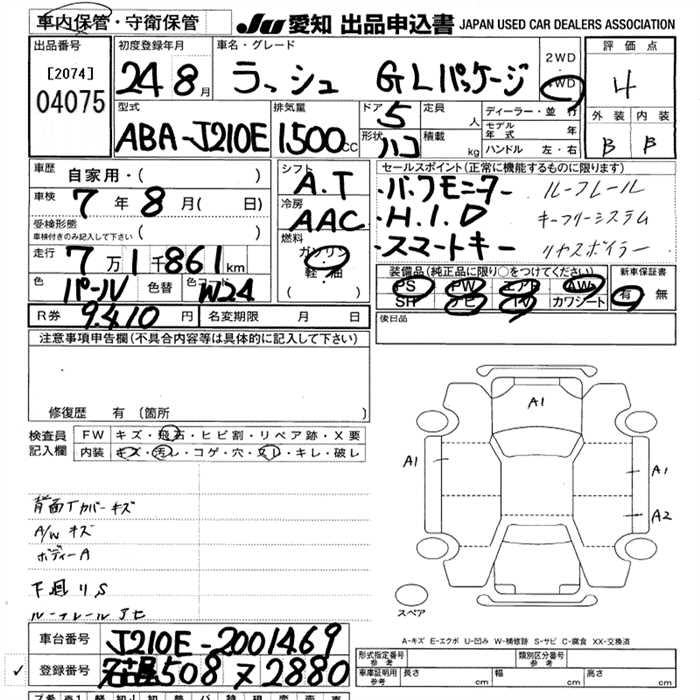 車内保管・守衛保管 JU 愛知 出品申込書 JAPAN USED CAR DEALERS ASSOCIATION
出品番号 初度登録年月 車名・グレード 2WD 評価点
[2074] 24 8月 ラッシュ GLパッケージ 4WD 4
04075 型式 排気量 ドア 5 定員 人 ディーラー・並行 外装 内装
モデル年式 年
ABA-J210E 1500cc 形状 ハコ 積載 kg ハンドル 左・右 B B
車歴 自家用・( ) シフト A.T セールスポイント(正常に機能するものに限ります)
車検 7年8月( 日) 冷房 AAC ・バックモニター ルーフレール
受検形態 ・H.I.D キーフリーシステム
車検付きのみ記入して下さい ( ) 燃料 ガソリン ・スマートキー リヤスポイラー
走行 7万1千861km 軽・油 装備品(純正品に限り○をつけてください) 新車保証書
色 パール 色替 色コード W24 ( ) PS PW エアB AW 有・無
SR ナビ TV カワシート
R券 9.410円 名変期限 月 日 後日品
注意事項申告欄(不具合内容等は具体的に記入して下さい)
修復歴 有 (箇所 )
検査員 FW キズ・飛石・ヒビ割・リペア跡・X要
記入欄 内装 キズ・汚レ・コゲ・穴・スレ・キレ・破レ
A1
A1 A1
A2
背面Tカバーキズ
A/Wキズ
ボディーA
下廻りS
ルーフレール
スペア
A-キズ E-エクボ U-凹み W-補修跡 S-サビ C-腐食 XX-交換済
車台番号 J210E-2001469
✓ 登録番号 名古屋 508 ス 2880
形式指定番号 参考 類別区分番号 参考
車庫証明用 参考 長さ cm 幅 cm 高さ cm